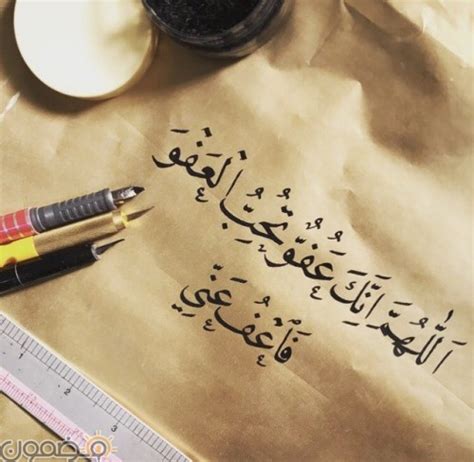 اَللّٰهُمَّ اِنَّكَ عَفُوٌّ تُحِبُّ الْعَفْوَ
فَاْعْفُ عَنِّي
مضمون